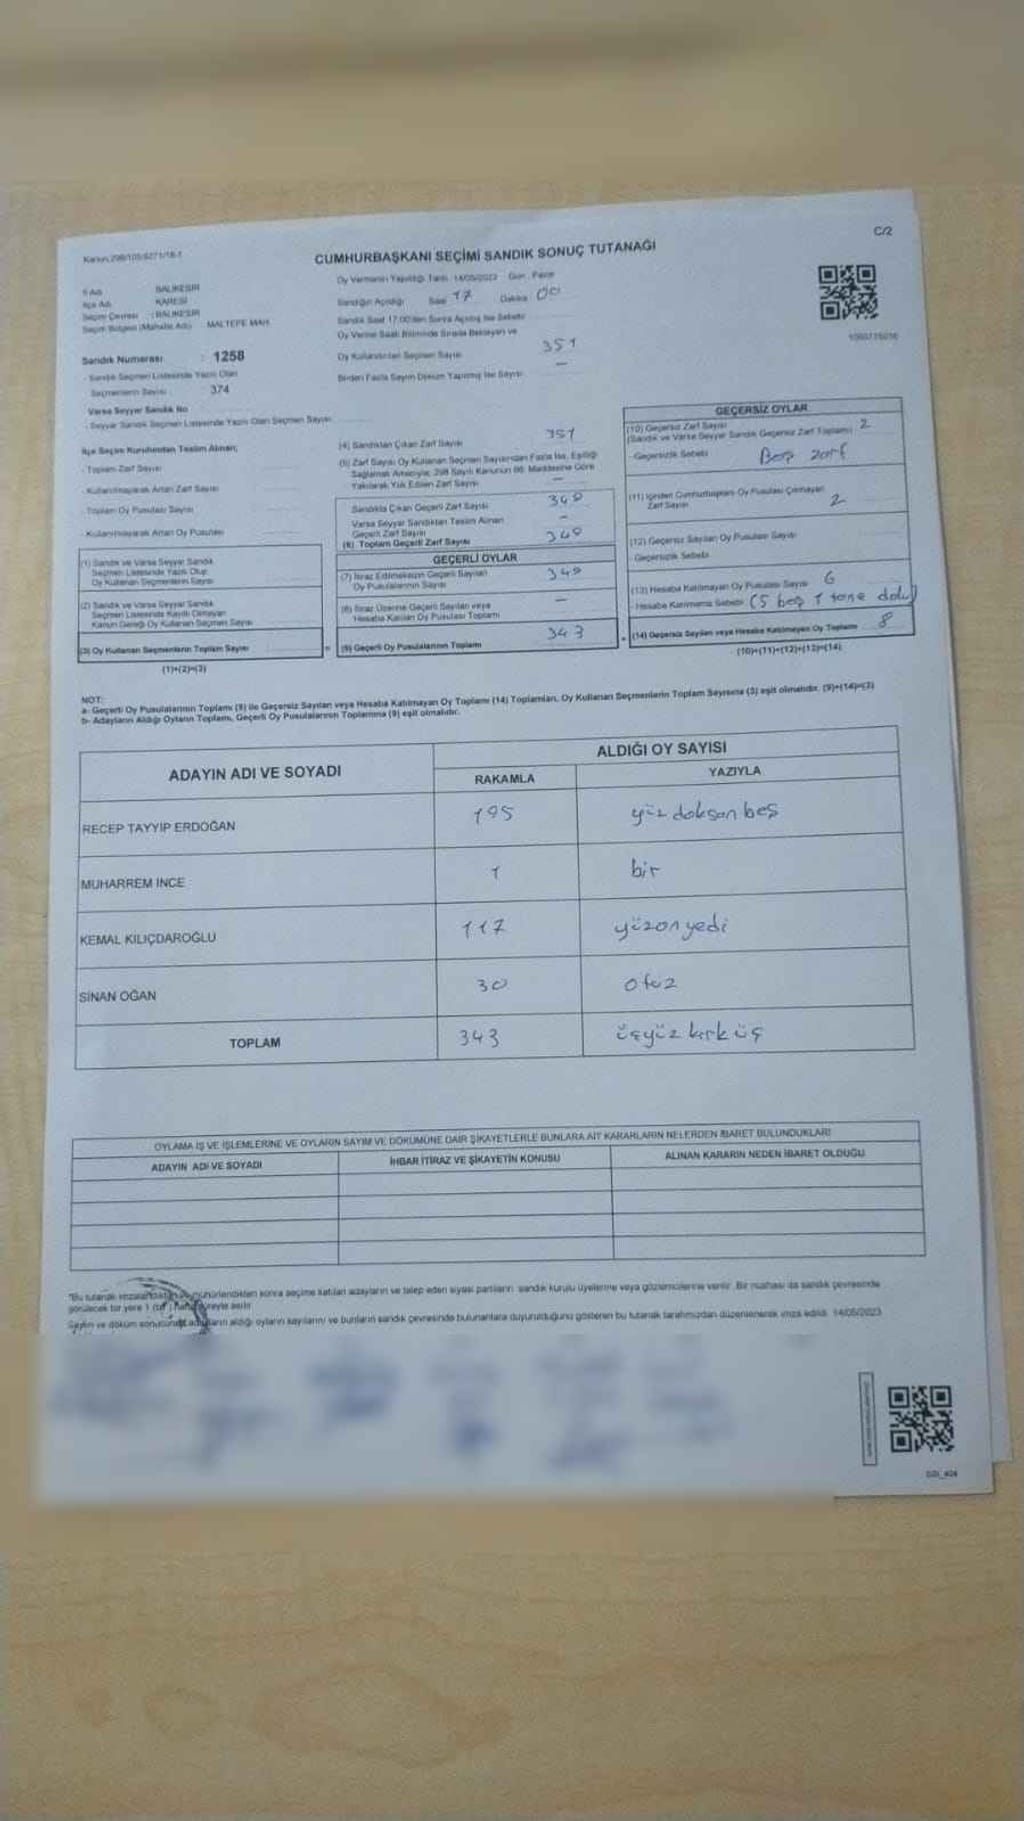 C/2
CUMHURBAŞKANI SEÇİMİ SANDIK SONUÇ TUTANAĞI
İl Adı BALIKESİR
İlçe Adı KARESİ
Seçim Çevresi : BALIKESİR
Seçim Bölgesi (Mahalle Adı) MALTEPE MAH.
Sandık Numarası : 1258
- Sandık Seçmen Listesinde Yazılı Olan
Seçmenlerin Sayısı 374
Varsa Seyyar Sandık No
- Seyyar Sandık Seçmen Listesinde Yazılı Olan Seçmen Sayısı
İlçe Seçim Kurulundan Teslim Alınan;
- Toplam Zarf Sayısı
- Kullanılmayarak Artan Zarf Sayısı
- Toplam Oy Pusulası Sayısı
- Kullanılmayarak Artan Oy Pusulası
(1) Sandık ve Varsa Seyyar Sandık
Seçmen Listesinde Yazılı Olup
Oy Kullanan Seçmenlerin Sayısı
(2) Sandık ve Varsa Seyyar Sandık
Seçmen Listesinde Kayıtlı Olmayan
Kanun Gereği Oy Kullanan Seçmen Sayısı
(3) Oy Kullanan Seçmenlerin Toplam Sayısı
(1)+(2)=(3)
Oy Vermenin Yapıldığı Tarih : 14/05/2023 Gün : Pazar
Sandığın Açıldığı Saat 17 Dakika 00
Sandık Saat 17.00'den Sonra Açılmış İse Sebebi
Oy Verme Saati Bitiminde Sırada Bekleyen ve
Oy Kullananların Seçmen Sayısı 351
Birden Fazla Sayım Döküm Yapılmış İse Sayısı –
(4) Sandıktan Çıkan Zarf Sayısı 351
(5) Zarf Sayısı Oy Kullanan Seçmen Sayısından Fazla İse, Eşitliği
Sağlamak Amacıyla, 298 Sayılı Kanunun 98. Maddesine Göre
Yakılarak Yok Edilen Zarf Sayısı –
Sandıkta Çıkan Geçerli Zarf Sayısı 349
Varsa Seyyar Sandıktan Teslim Alınan
Geçerli Zarf Sayısı –
(6) Toplam Geçerli Zarf Sayısı 349
GEÇERLİ OYLAR
(7) İtiraz Edilmeksizin Geçerli Sayılan
Oy Pusulalarının Sayısı 349
(8) İtiraz Üzerine Geçerli Sayılan veya
Hesaba Katılan Oy Pusulası Toplamı –
(9) Geçerli Oy Pusulalarının Toplamı 343
GEÇERSİZ OYLAR
(10) Geçersiz Zarf Sayısı 2
(Sandık ve Varsa Seyyar Sandık Geçersiz Zarf Toplamı)
- Geçersizlik Sebebi Boş zarf
(11) İçinden Cumhurbaşkanı Oy Pusulası Çıkmayan
Zarf Sayısı 2
(12) Geçersiz Sayılan Oy Pusulası Sayısı
Geçersizlik Sebebi
(13) Hesaba Katılmayan Oy Pusulası Sayısı 6
Hesaba Katılmama Sebebi (5 boş 1 tane dolu)
(14) Geçersiz Sayılan veya Hesaba Katılmayan Oy Toplamı 8
(10)+(11)+(12)+(13)=(14)
NOT:
a- Geçerli Oy Pusulalarının Toplamı (9) ile Geçersiz Sayılan veya Hesaba Katılmayan Oy Toplamı (14) Toplamları, Oy Kullanan Seçmenlerin Toplam Sayısına (3) eşit olmalıdır. (9)+(14)=(3)
b- Adayların Aldığı Oyların Toplamı, Geçerli Oy Pusulalarının Toplamına (9) eşit olmalıdır.
ADAYIN ADI VE SOYADI ALDIĞI OY SAYISI
RAKAMLA YAZIYLA
RECEP TAYYİP ERDOĞAN 195 yüz doksan beş
MUHARREM İNCE 1 bir
KEMAL KILIÇDAROĞLU 117 yüzonyedi
SİNAN OĞAN 30 otuz
TOPLAM 343 üçyüz kırk üç
OYLAMA İŞ VE İŞLEMLERİNE VE OYLARIN SAYIM VE DÖKÜMÜNE DAİR ŞİKAYETLERLE BUNLARA AİT KARARLARIN NELERDEN İBARET BULUNDUKLARI
ADAYIN ADI VE SOYADI İHBAR İTİRAZ VE ŞİKAYETİN KONUSU ALINAN KARARIN NEDEN İBARET OLDUĞU
"Bu tutanak imzalandıktan ve mühürlendikten sonra seçime katılan adayların ve talep eden siyasi partilerin sandık kurulu üyelerine veya gözlemcilerine verilir. Bir nüshası da sandık çevresinde
görülecek bir yere 1 (bir) hafta süreyle asılır.
Sayım ve döküm sonucunda adayların aldığı oyların sayılarını ve bunların sandık çevresinde bulunanlara duyurulduğunu gösteren bu tutanak tarafımızdan düzenlenerek imza edildi. 14/05/2023